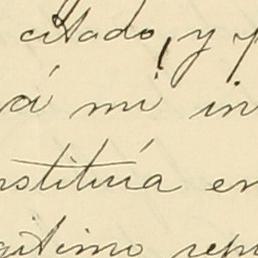 citado, y p
á mi in
nstituía en
gítimo repr